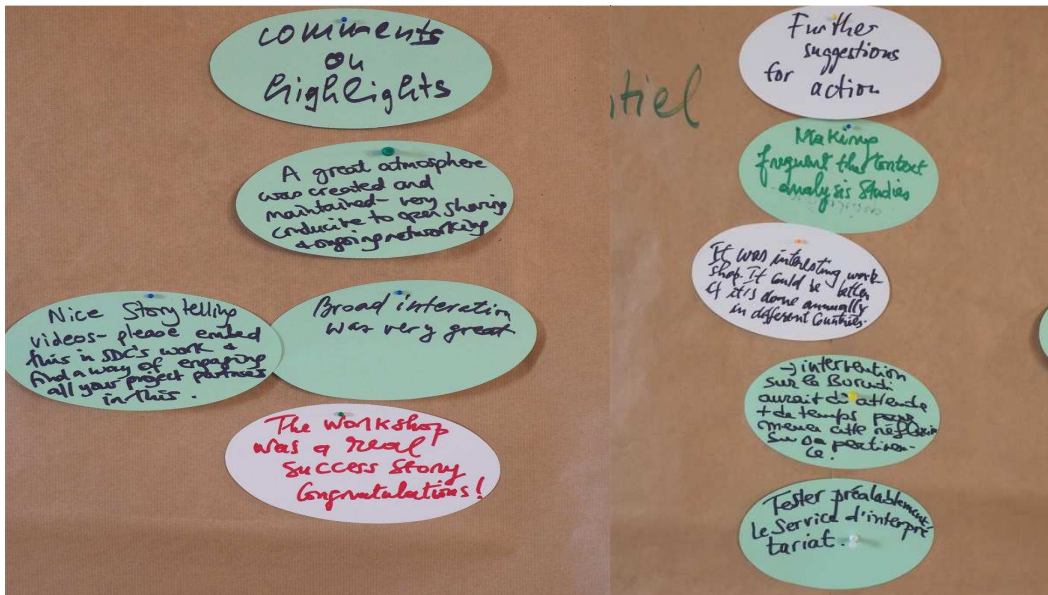 comments
on
highlights
A great atmosphere
was created and
maintained - very
conducive to open sharing
& ongoing networking
Nice Storytelling
videos - please embed
this in SDC's work &
find a way of engaging
all your project partners
in this.
Broad interation
was very great
The workshop
was a real
success story
Congratulations!
tiel
Further
suggestions
for action
Making
frequent the context
analysis studies
It was interesting work-
shop. It could be better
if it is done annually
in different Countries.
→ intervention
sur le Burudi
aurait dû attendre
+ de temps pour
mener cette réflexion
sur sa pertinen-
ce.
Tester préalablement
le Service d'interpré
tariat.